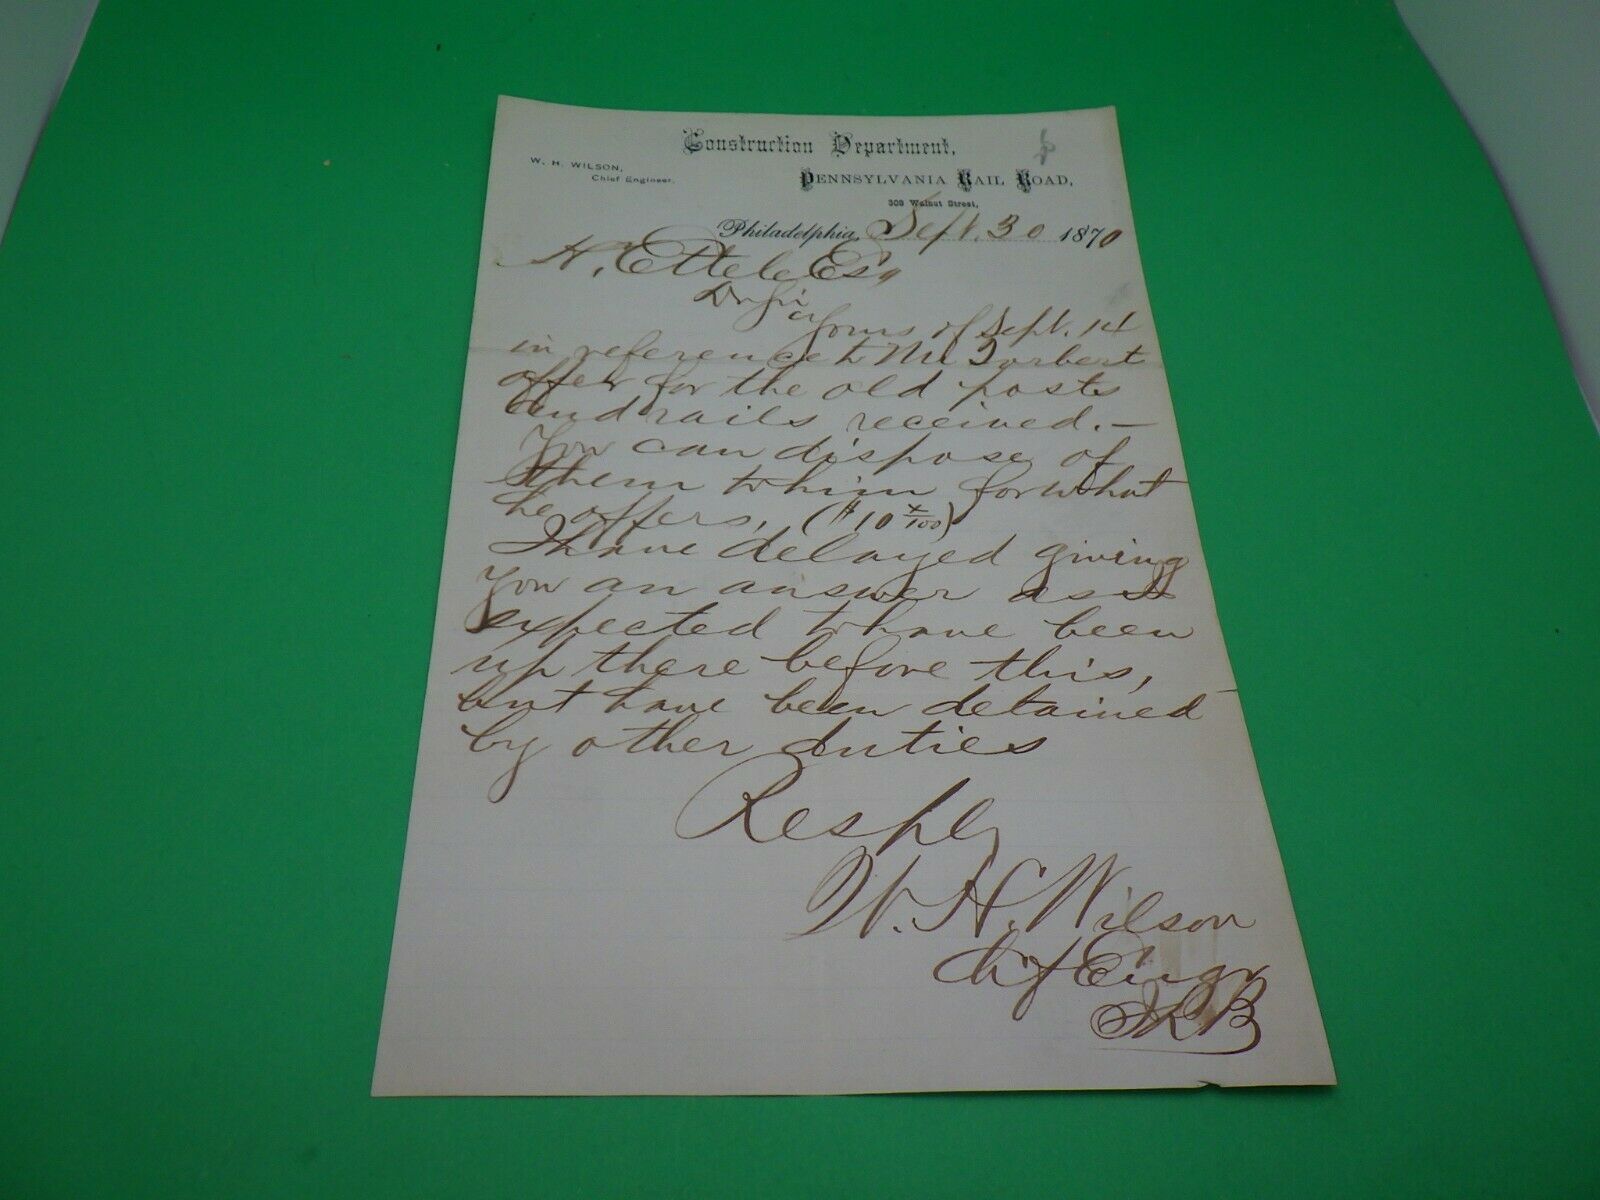 Construction Department,
W. H. WILSON,
Chief Engineer.
PENNSYLVANIA RAIL ROAD,
308 Walnut Street,
Philadelphia, Sept. 30 1870
H. Ettele Esq
Dr Sir
Yours of Sept. 14
in reference to Mr Torbert
offer for the old posts
and rails received. —
You can dispose of
them to him for what
he offers, ($10 x/100)
I have delayed giving
you an answer as I
expected to have been
up there before this,
but have been detained
by other duties
Resply
W. H. Wilson
Chf Engr